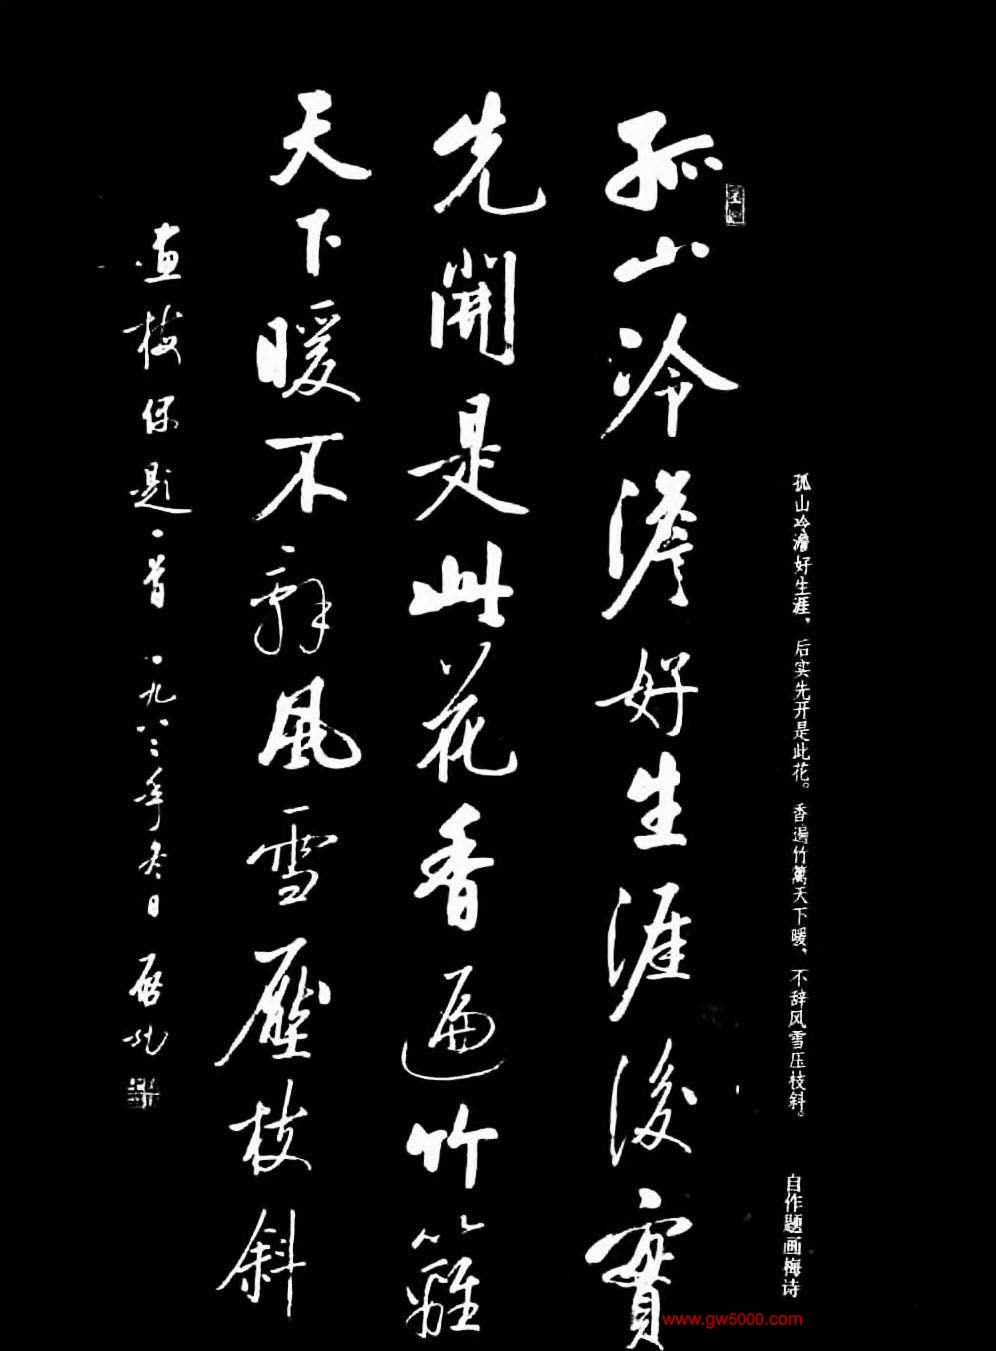 孤山冷澹好生涯、后实先开是此花。香遍竹篱天下暖、不辞风雪压枝斜。
自作题画梅诗
孤山冷澹好生涯後實
先開是此花香遍竹籬
天下暖不辭風雪壓枝斜
畫梅偶題一首 一九八二年冬日 啓功
www.gw5000.com